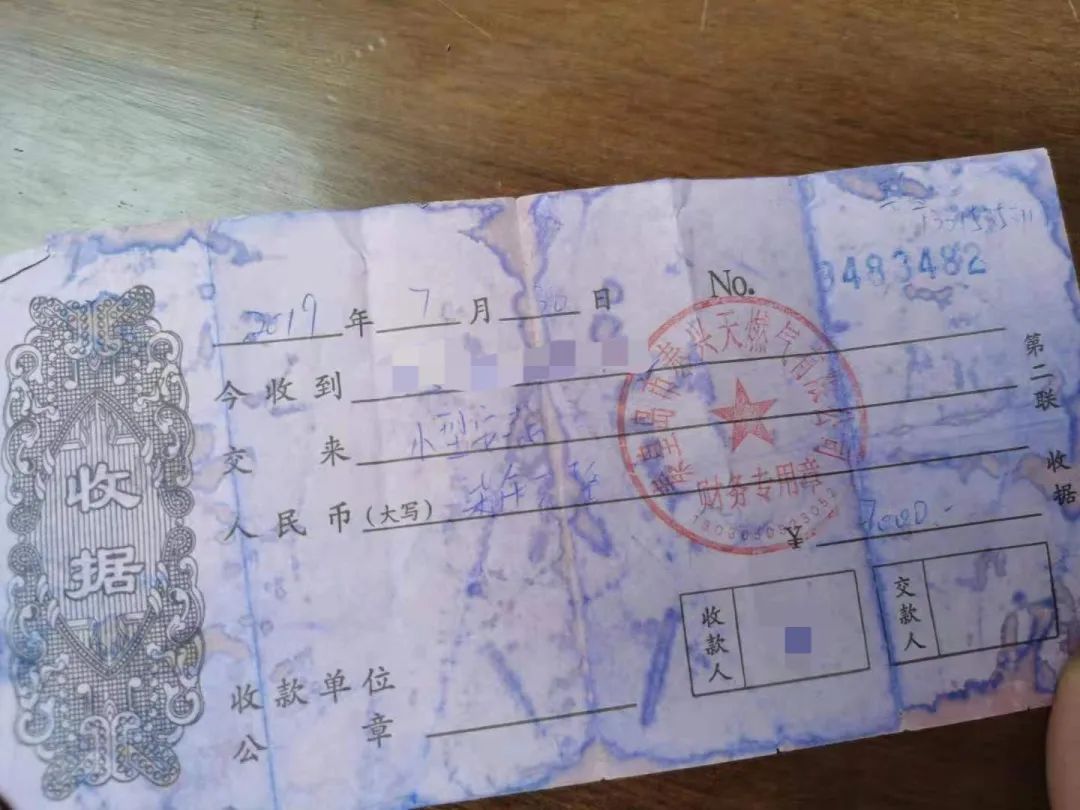 No. 3483482
2017年7月30日
今收到
交来 小型
人民币(大写) 柒仟元整
¥ 7000.-
第二联 收据
收据
秦皇岛市泰兴天燃气有限公司
财务专用章
收款人
交款人
收款单位
公章